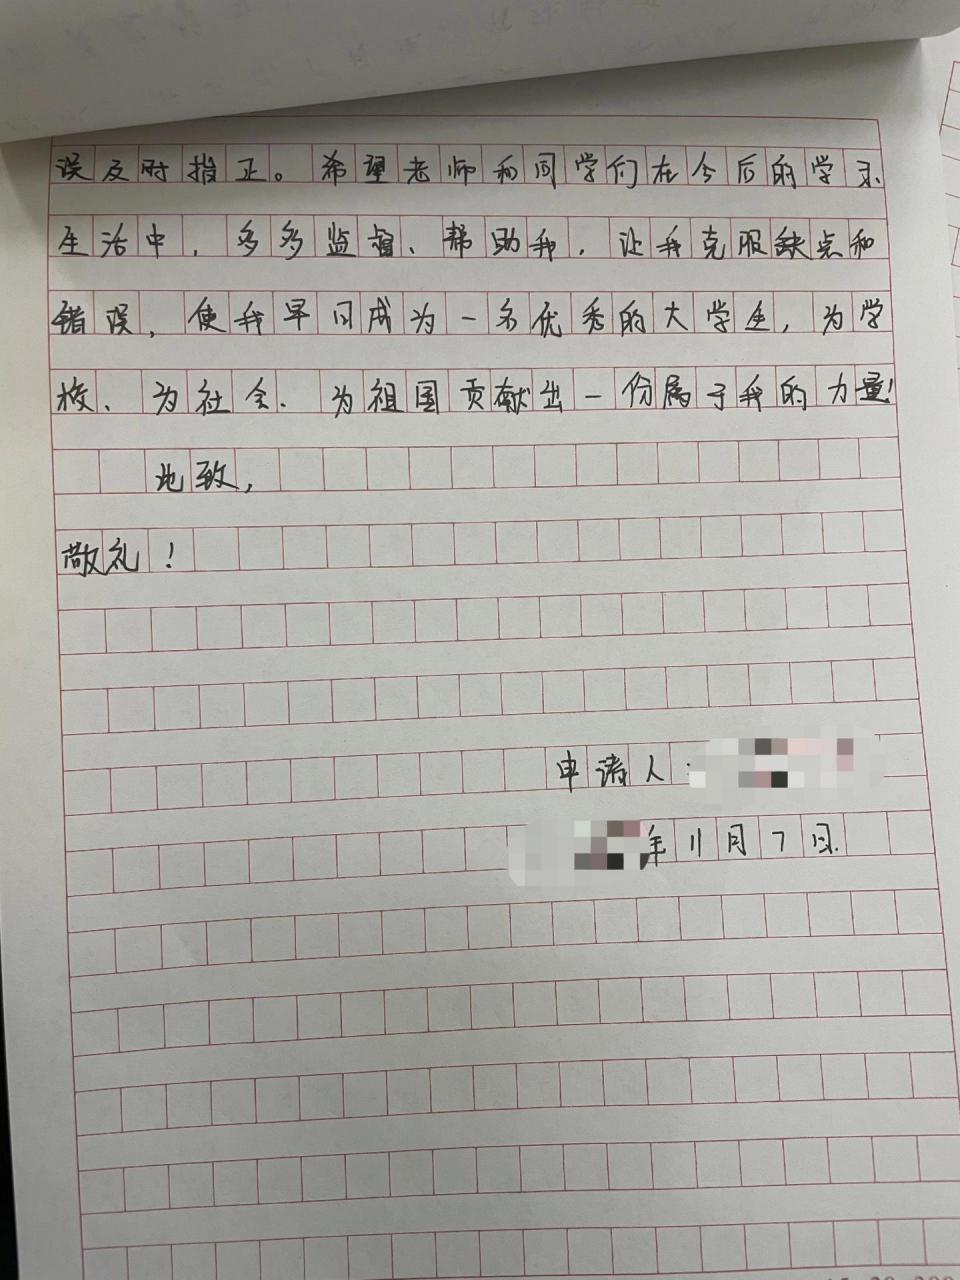 误及时指正。希望老师和同学们在今后的学习、
生活中，多多监督、帮助我，让我克服缺点和
错误，使我早日成为一名优秀的大学生，为学
校、为社会、为祖国贡献出一份属于我的力量!
此致，
敬礼！
申请人：
年11月7日.